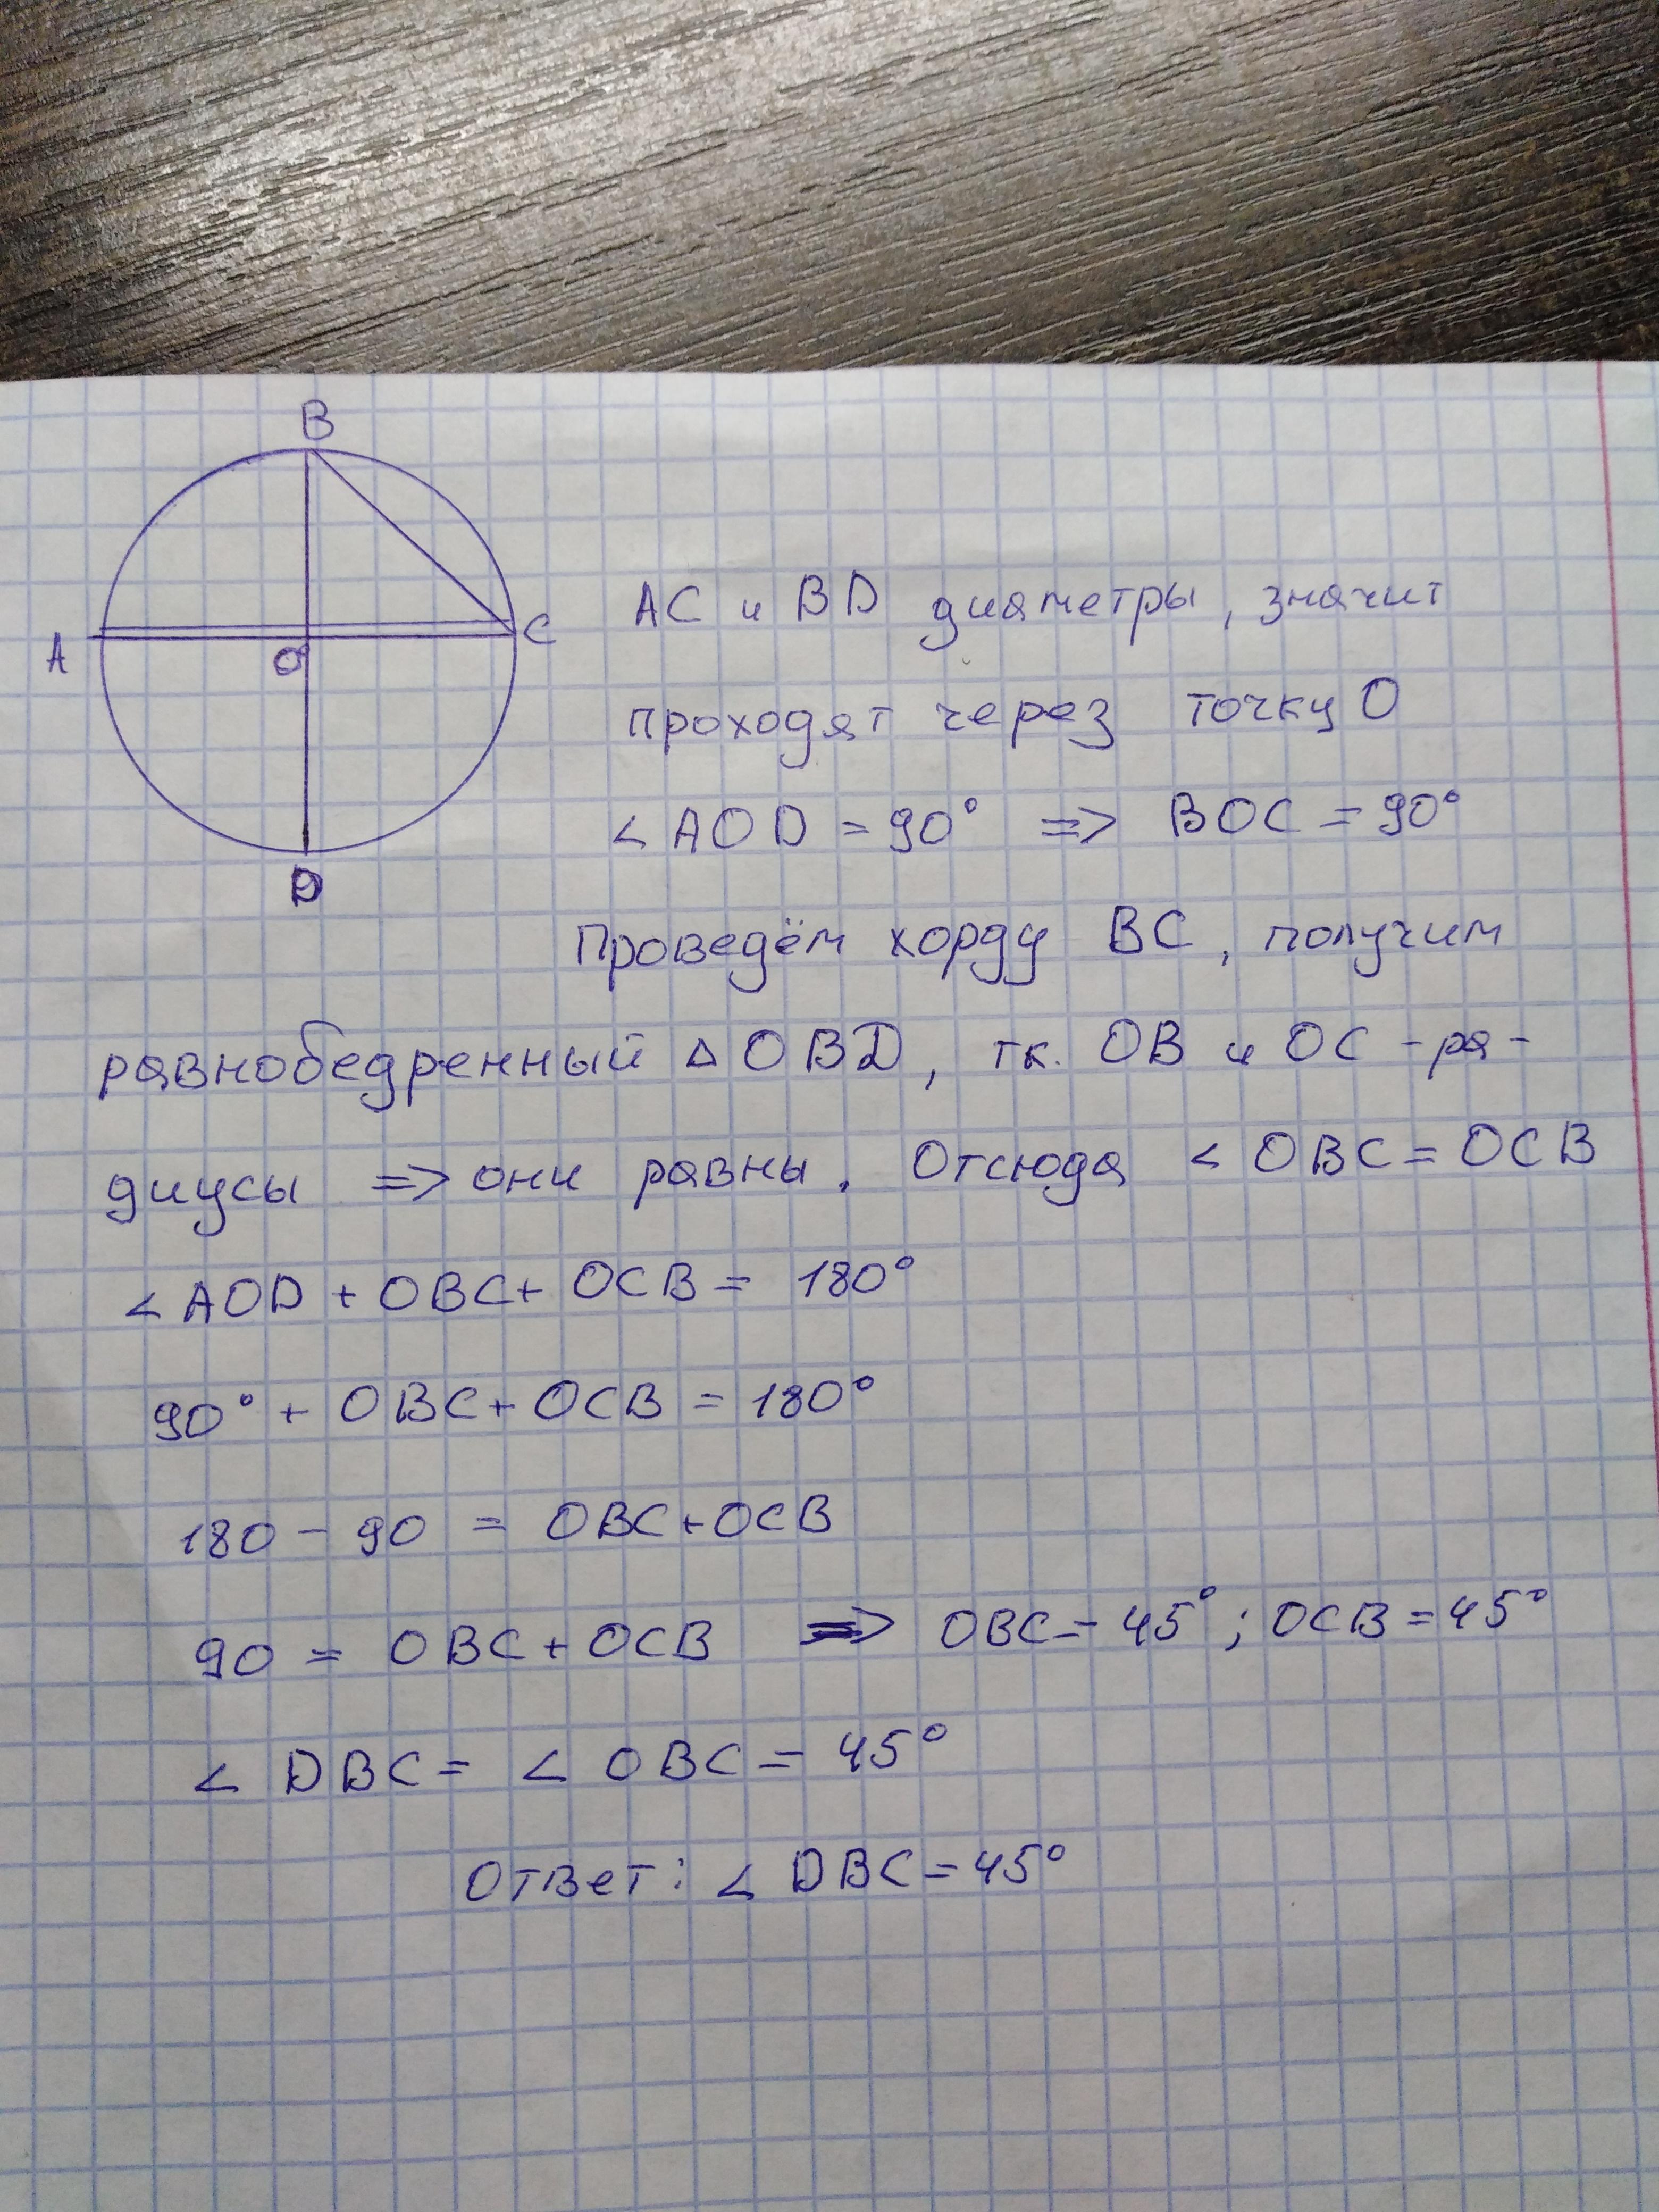 B
A
O
C
D
AC и BD диаметры, значит
проходят через точку O
∠ AOD = 90° => BOC = 90°
Проведём хорду BC, получим
равнобедренный △ OBD, тк. OB и OC - ра-
диусы => они равны. Отсюда ∠ OBC = OCB
∠ AOD + OBC + OCB = 180°
90° + OBC + OCB = 180°
180 - 90 = OBC + OCB
90 = OBC + OCB => OBC = 45° ; OCB = 45°
∠ DBC = ∠ OBC = 45°
Ответ: ∠ DBC = 45°